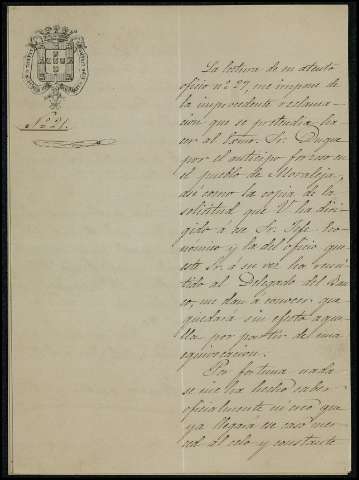 Nº 21.
La lectura de su atento
oficio nº 27, me impone de
la improcedente reclama-
cion que se pretendia ha-
cer al Excmo. Sr. Duque
por el anticipo forzoso en
el pueblo de Moraleja,
asi como la copia de la
solicitud que V. ha diri-
gido á ese Sr. Jefe Eco-
nómico y la del oficio que
este Sr. á su vez ha remi-
tido al Delegado del Ban-
co, me dan a conocer que
quedará sin efecto aque-
lla por partir de una
equivocacion.
Por fortuna nada
se me ha hecho saber
oficialmente ni creo que
ya llegará ese caso mer-
ced al celo y constante